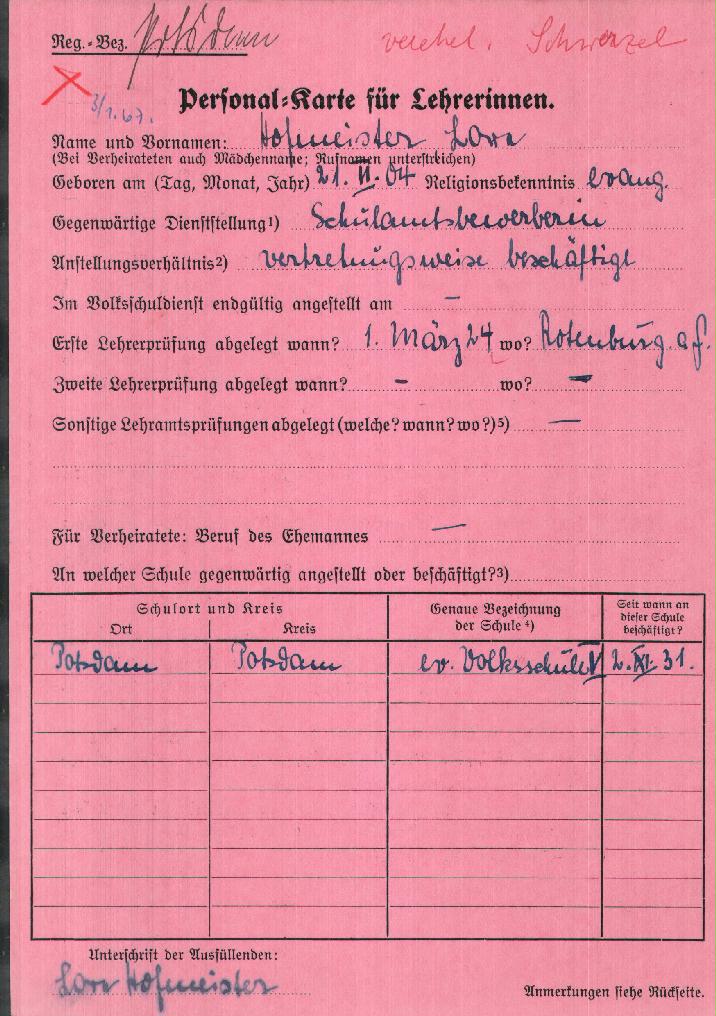 Reg.-Bez. Potsdam
verehel. Schwenzel
3/1.67.
Personal-Karte für Lehrerinnen.
Name und Vornamen: Hofmeister Lore
(Bei Verheirateten auch Mädchenname; Rufnamen unterstreichen)
Geboren am (Tag, Monat, Jahr) 21. VI. 04 Religionsbekenntnis evang.
Gegenwärtige Dienststellung1) Schulamtsbewerberin
Anstellungsverhältnis2) vertretungsweise beschäftigt
Im Volksschuldienst endgültig angestellt am —
Erste Lehrerprüfung abgelegt wann? 1. März 24 wo? Rotenburg a. f.
Zweite Lehrerprüfung abgelegt wann? — wo? —
Sonstige Lehramtsprüfungen abgelegt (welche? wann? wo?)5) —
Für Verheiratete: Beruf des Ehemannes —
An welcher Schule gegenwärtig angestellt oder beschäftigt?3)
Schulort und Kreis
Ort Kreis
Genaue Bezeichnung
der Schule4)
Seit wann an
dieser Schule
beschäftigt?
Potsdam Potsdam ev. Volksschule V 2. XI. 31.
Unterschrift der Ausfüllenden:
Lore Hofmeister
Anmerkungen siehe Rückseite.